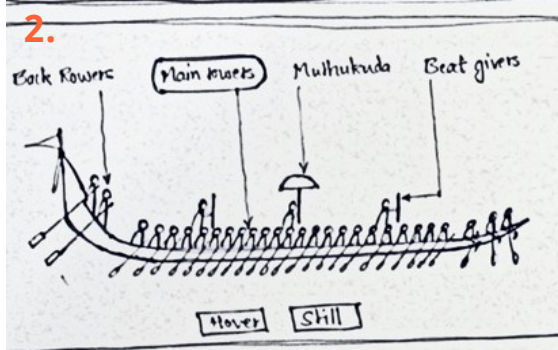 2.
Back Rowers
Main rowers
Muthukuda
Beat givers
Hover
Still